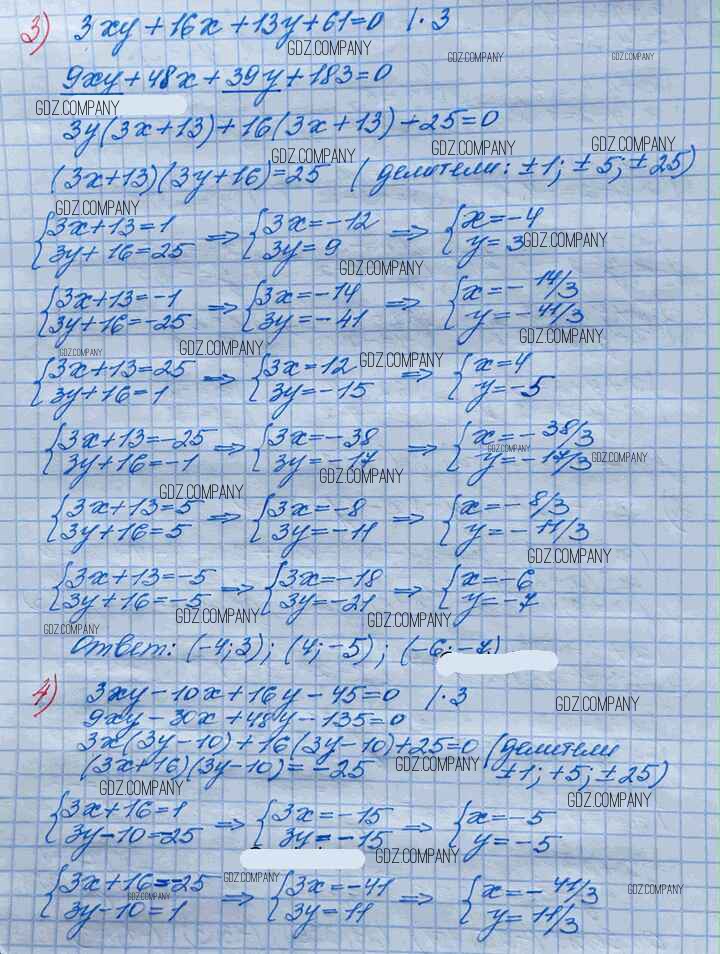 3) 3xy + 16x + 13y + 61 = 0 | · 3
GDZ.COMPANY GDZ.COMPANY GDZ.COMPANY
9xy + 48x + 39y + 183 = 0
GDZ.COMPANY
3y(3x+13) + 16(3x+13) - 25 = 0
GDZ.COMPANY GDZ.COMPANY GDZ.COMPANY
(3x+13)(3y+16) = 25 (делители: ±1; ±5; ±25)
GDZ.COMPANY
{3x+13=1 => {3x=-12 => {x=-4
{3y+16=25 {3y=9 {y=3
GDZ.COMPANY GDZ.COMPANY
{3x+13=-1 => {3x=-14 => {x=-14/3
{3y+16=-25 {3y=-41 {y=-41/3
GDZ.COMPANY GDZ.COMPANY GDZ.COMPANY
{3x+13=25 => {3x=12 => {x=4
{3y+16=1 {3y=-15 {y=-5
GDZ.COMPANY
{3x+13=-25 => {3x=-38 => {x=-38/3
{3y+16=-1 {3y=-17 {y=-17/3
GDZ.COMPANY GDZ.COMPANY GDZ.COMPANY GDZ.COMPANY
{3x+13=5 => {3x=-8 => {x=-8/3
{3y+16=5 {3y=-11 {y=-11/3
GDZ.COMPANY
{3x+13=-5 => {3x=-18 => {x=-6
{3y+16=-5 {3y=-21 {y=-7
GDZ.COMPANY GDZ.COMPANY GDZ.COMPANY
Ответ: (-4; 3); (4; -5); (-6; -7)
4) 3xy - 10x + 16y - 45 = 0 | · 3
GDZ.COMPANY
9xy - 30x + 48y - 135 = 0
3x(3y-10) + 16(3y-10) + 25 = 0 (делители
(3x+16)(3y-10) = -25 GDZ.COMPANY ±1; ±5; ±25)
GDZ.COMPANY GDZ.COMPANY
{3x+16=1 => {3x=-15 => {x=-5
{3y-10=-25 {3y=-15 {y=-5
GDZ.COMPANY
{3x+16=-25 => {3x=-41 => {x=-41/3
{3y-10=1 {3y=11 {y=11/3
GDZ.COMPANY GDZ.COMPANY GDZ.COMPANY